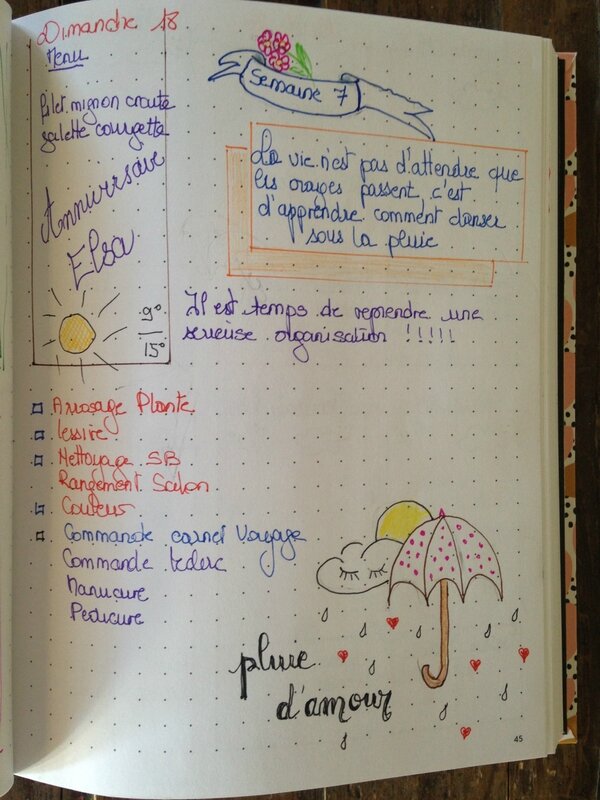 Dimanche 18
Menu
Filet mignon croute
galette courgette
Anniversaire
Elsa
9°
15°
Semaine 7
La vie n'est pas d'attendre que
les orages passent, c'est
d'apprendre comment danser
sous la pluie
Il est temps de reprendre une
serieuse organisation !!!!!
Arrosage Plante
lessive
Nettoyage SB
Rangement Salon
Commande carnet Voyage
Commande leclerc
Manucure
Pedicure
pluie
d'amour
45